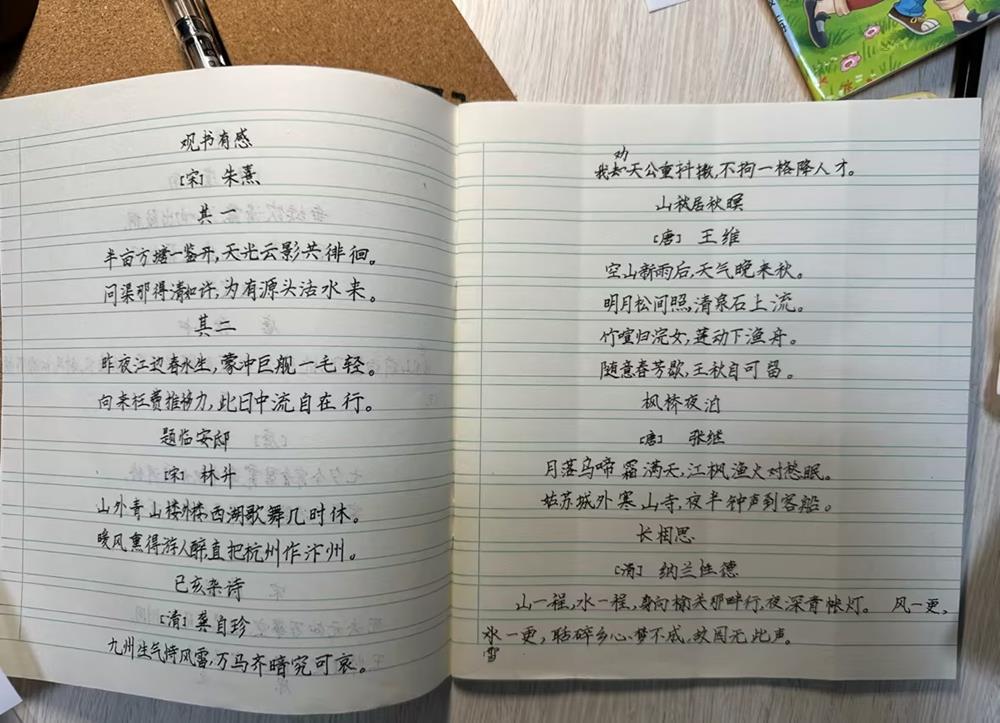 观书有感
[宋] 朱熹
其一
半亩方塘一鉴开,天光云影共徘徊。
问渠那得清如许,为有源头活水来。
其二
昨夜江边春水生,蒙冲巨舰一毛轻。
向来枉费推移力,此日中流自在行。
题临安邸
[宋] 林升
山外青山楼外楼,西湖歌舞几时休。
暖风熏得游人醉,直把杭州作汴州。
己亥杂诗
[清] 龚自珍
九州生气恃风雷,万马齐喑究可哀。
劝
我天公重抖擞,不拘一格降人才。
山居秋暝
[唐] 王维
空山新雨后,天气晚来秋。
明月松间照,清泉石上流。
竹喧归浣女,莲动下渔舟。
随意春芳歇,王秋自可留。
枫桥夜泊
[唐] 张继
月落乌啼霜满天,江枫渔火对愁眠。
姑苏城外寒山寺,夜半钟声到客船。
长相思
[清] 纳兰性德
山一程,水一程,身向榆关那畔行,夜深青帐灯。 风一更,
一更,聒碎乡心梦不成,故园无此声。
雪